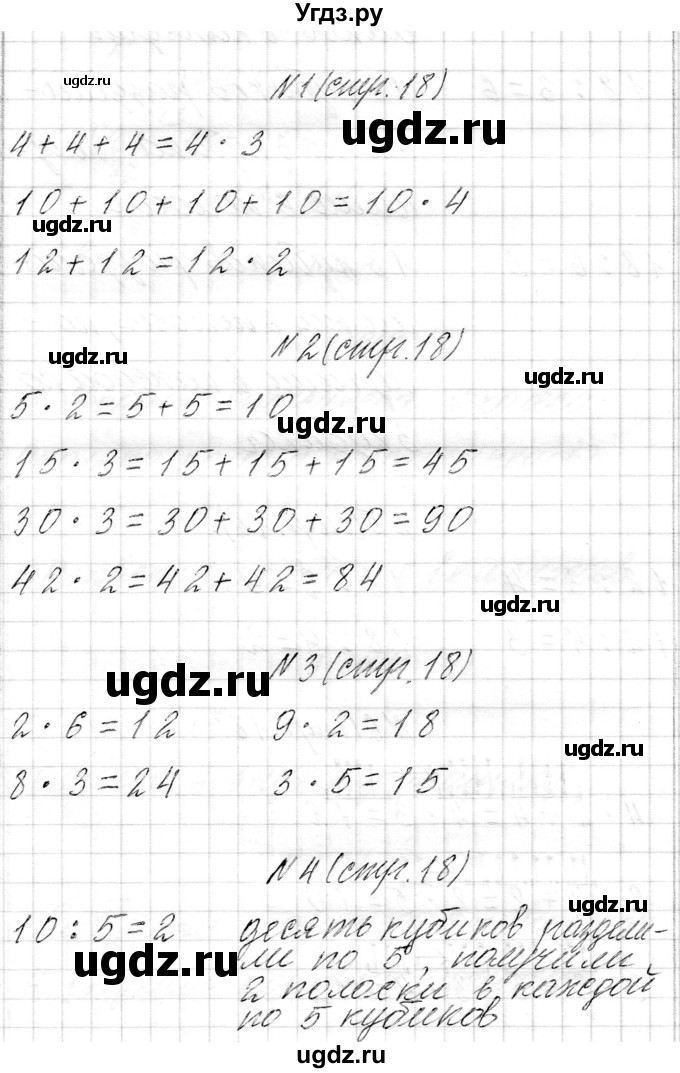 Угдз.ру
ugdz.ru
N1 (стр. 18)
ugdz.ru
4 + 4 + 4 = 4 · 3
10 + 10 + 10 + 10 = 10 · 4
ugdz.ru
12 + 12 = 12 · 2
N2 (стр. 18)
ugdz.ru
ugdz.ru
5 · 2 = 5 + 5 = 10
ugdz.ru
15 · 3 = 15 + 15 + 15 = 45
30 · 3 = 30 + 30 + 30 = 90
42 · 2 = 42 + 42 = 84
ugdz.ru
N3 (стр. 18)
ugdz.ru
2 · 6 = 12 9 · 2 = 18
ugdz.ru
8 · 3 = 24 3 · 5 = 15
N4 (стр. 18)
ugdz.ru
10 : 5 = 2 десять кубиков раздели-
ли по 5, получили
ugdz.ru
2 полоски в каждой
по 5 кубиков
ugdz.ru